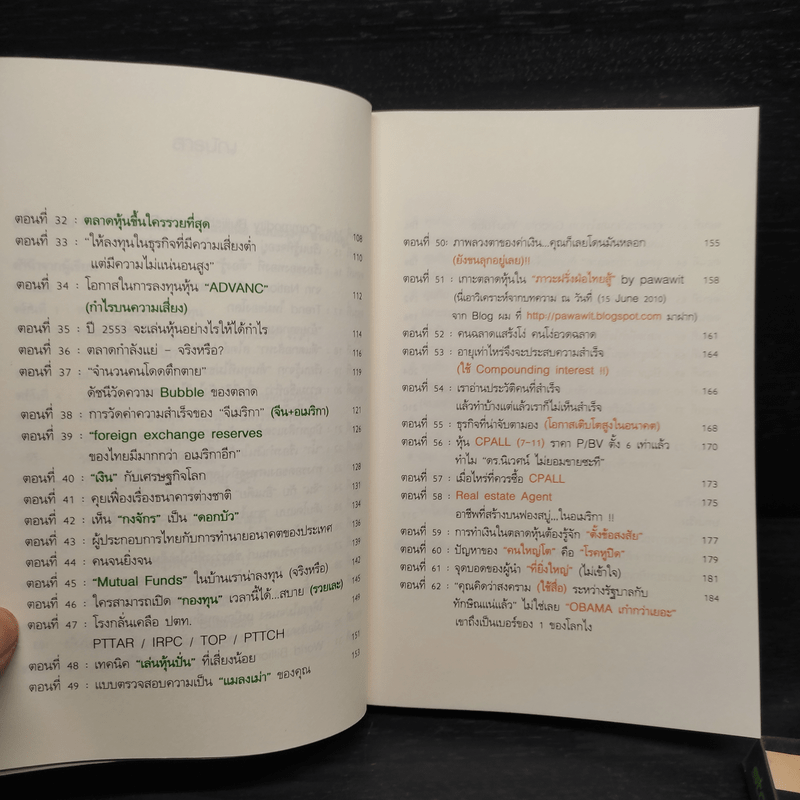 ตอนที่ 32 : ตลาดหุ้นขึ้นใครรวยที่สุด 108
ตอนที่ 33 : "ให้ลงทุนในธุรกิจที่มีความเสี่ยงต่ำ 110
แต่มีความไม่แน่นอนสูง"
ตอนที่ 34 : โอกาสในการลงทุนหุ้น "ADVANC" 112
(กำไรบนความเสี่ยง)
ตอนที่ 35 : ปี 2553 จะเล่นหุ้นอย่างไรให้ได้กำไร 114
ตอนที่ 36 : ตลาดกำลังแย่ - จริงหรือ? 116
ตอนที่ 37 : "จำนวนคนโดดตึกตาย" 119
ดัชนีวัดความ Bubble ของตลาด
ตอนที่ 38 : การวัดค่าความสำเร็จของ "จีเมริกา" (จีน+อเมริกา) 121
ตอนที่ 39 : "foreign exchange reserves 126
ของไทยมีมากกว่า อเมริกาอีก"
ตอนที่ 40 : "เงิน" กับเศรษฐกิจโลก 128
ตอนที่ 41 : คุยเฟื่องเรื่องธนาคารต่างชาติ 131
ตอนที่ 42 : เห็น "กงจักร" เป็น "ดอกบัว" 136
ตอนที่ 43 : ผู้ประกอบการไทยกับการทำนายอนาคตของประเทศ 139
ตอนที่ 44 : คนจนยิ่งจน 142
ตอนที่ 45 : "Mutual Funds" ในบ้านเราน่าลงทุน (จริงหรือ) 145
ตอนที่ 46 : ใครสามารถเปิด "กองทุน" เวลานี้ได้...สบาย (รวยเละ) 149
ตอนที่ 47 : โรงกลั่นเคลือ ปตท.
PTTAR / IRPC / TOP / PTTCH 151
ตอนที่ 48 : เทคนิค "เล่นหุ้นปั่น" ที่เสี่ยงน้อย 153
ตอนที่ 49 : แบบตรวจสอบความเป็น "แมลงเม่า" ของคุณ
ตอนที่ 50: ภาพลวงตาของค่าเงิน...คุณก็เลยโดนมันหลอก 155
(ยังขนลุกอยู่เลย)!!
ตอนที่ 51 : เกาะตลาดหุ้นใน "ภาวะฝรั่งผ่อไทยสู้" by pawawit 158
(นี่เอาวิเคราะห์จากบทความ ณ วันที่ (15 June 2010)
จาก Blog ผม ที่ http://pawawit.blogspot.com มาฝาก)
ตอนที่ 52 : คนฉลาดแสร้งโง่ คนโง่อวดฉลาด 161
ตอนที่ 53 : อายุเท่าไหร่จึงจะประสบความสำเร็จ 164
(ใช้ Compounding interest !!)
ตอนที่ 54 : เราอ่านประวัติคนที่สำเร็จ 166
แล้วทำบ้างแต่แล้วเราก็ไม่เห็นสำเร็จ
ตอนที่ 55 : ธุรกิจที่น่าจับตามอง (โอกาสเติบโตสูงในอนาคต) 168
ตอนที่ 56 : หุ้น CPALL (7-11) ราคา P/BV ตั้ง 6 เท่าแล้ว 170
ทำไม "ดร.นิเวศน์ ไม่ยอมขายซะที"
ตอนที่ 57 : เมื่อไหร่ที่ควรซื้อ CPALL 173
ตอนที่ 58 : Real estate Agent 175
อาชีพที่สร้างบนฟองสบู่...ในอเมริกา !!
ตอนที่ 59 : การทำเงินในตลาดหุ้นต้องรู้จัก "ตั้งข้อสงสัย" 177
ตอนที่ 60 : ปัญหาของ "คนใหญ่โต" คือ "โรคหูปิด" 179
ตอนที่ 61 : จุดบอดของผู้นำ "ที่ยิ่งใหญ่" (ไม่เข้าใจ) 181
ตอนที่ 62 : "คุณคิดว่าสงคราม (ใช้สื่อ) ระหว่างรัฐบาลกับ 184
ทักษิณแน่แล้ว" ไม่ใช่เลย "OBAMA เก๋ากว่าเยอะ"
เขาถึงเป็นเบอร์ของ 1 ของโลกไง